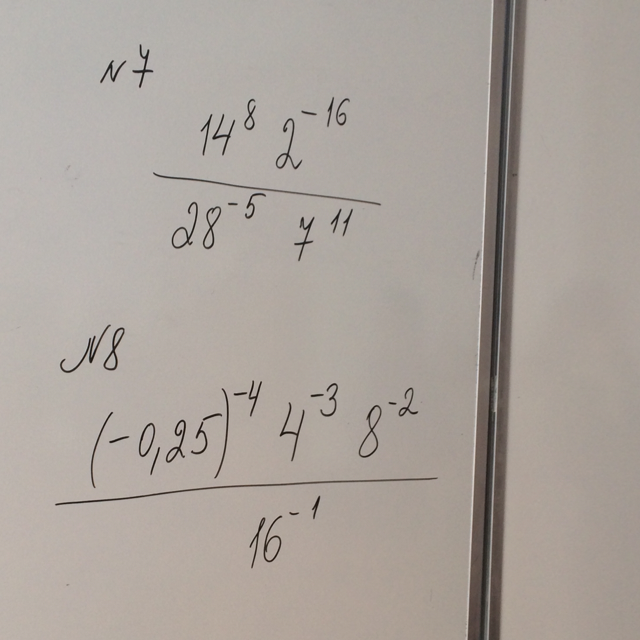 N7
14⁸ 2⁻¹⁶
28⁻⁵ 7¹¹
N8
(-0,25)⁻⁴ 4⁻³ 8⁻²
16⁻¹